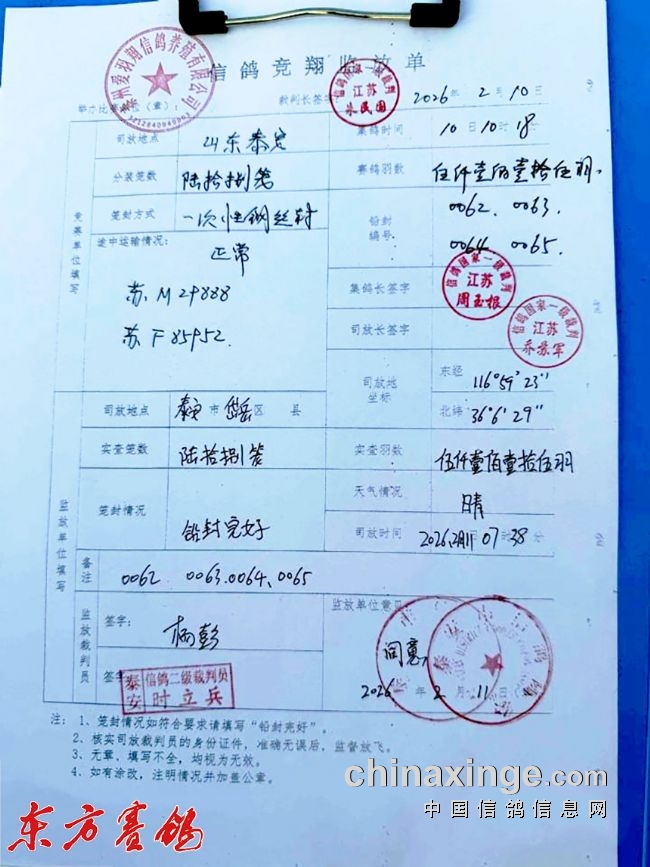 泰州爱羽翔信鸽养殖有限公司
信鸽竞翔监放单
信鸽国家一级裁判
江苏
裁判长签字
2026年2月10日
举办比赛单位（章）：
竞赛单位填写
司放地点 山东泰安 集鸽时间 10日10时18
分装笼数 陆拾捌笼 赛鸽羽数 伍仟壹佰壹拾伍羽
笼封方式 一次性钢丝封 铅封编号 0062. 0063.
0064 0065.
途中运输情况： 正常
苏M29888
苏F85952.
集鸽长签字 信鸽国家一级裁判 江苏 周玉根
司放长签字 信鸽国家一级裁判 江苏 乔苏军
司放地坐标 东经 116°59'23"
北纬 36°6'29"
监放单位填写
司放地点 泰安市岱岳区 县
实查笼数 陆拾捌笼 实查羽数 伍仟壹佰壹拾伍羽
笼封情况 铅封完好 天气情况 晴
司放时间 2026.2月11 07:38分
备注 0062 0063.0064、0065
监放裁判员 签字： 监放单位意见
签字
泰安 信鸽二级裁判员 时立兵
2026年2月11日
注：1、笼封情况如符合要求请填写“铅封完好”。
2、核实司放裁判员的身份证件，准确无误后，监督放飞。
3、无章、填写不全，均视为无效。
4、如有涂改，注明情况并加盖公章。
东方赛鸽
chinaxinge.com
中国信鸽信息网